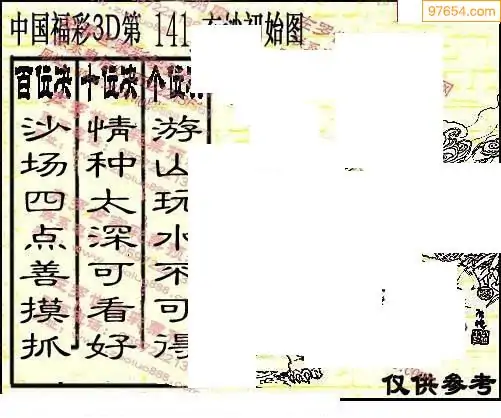 97654.com
中国福彩3D第 141 始图
百位决
沙场四点善摸抓
十位决
情种太深可看好
个位决
游山玩水不可得
仅供参考